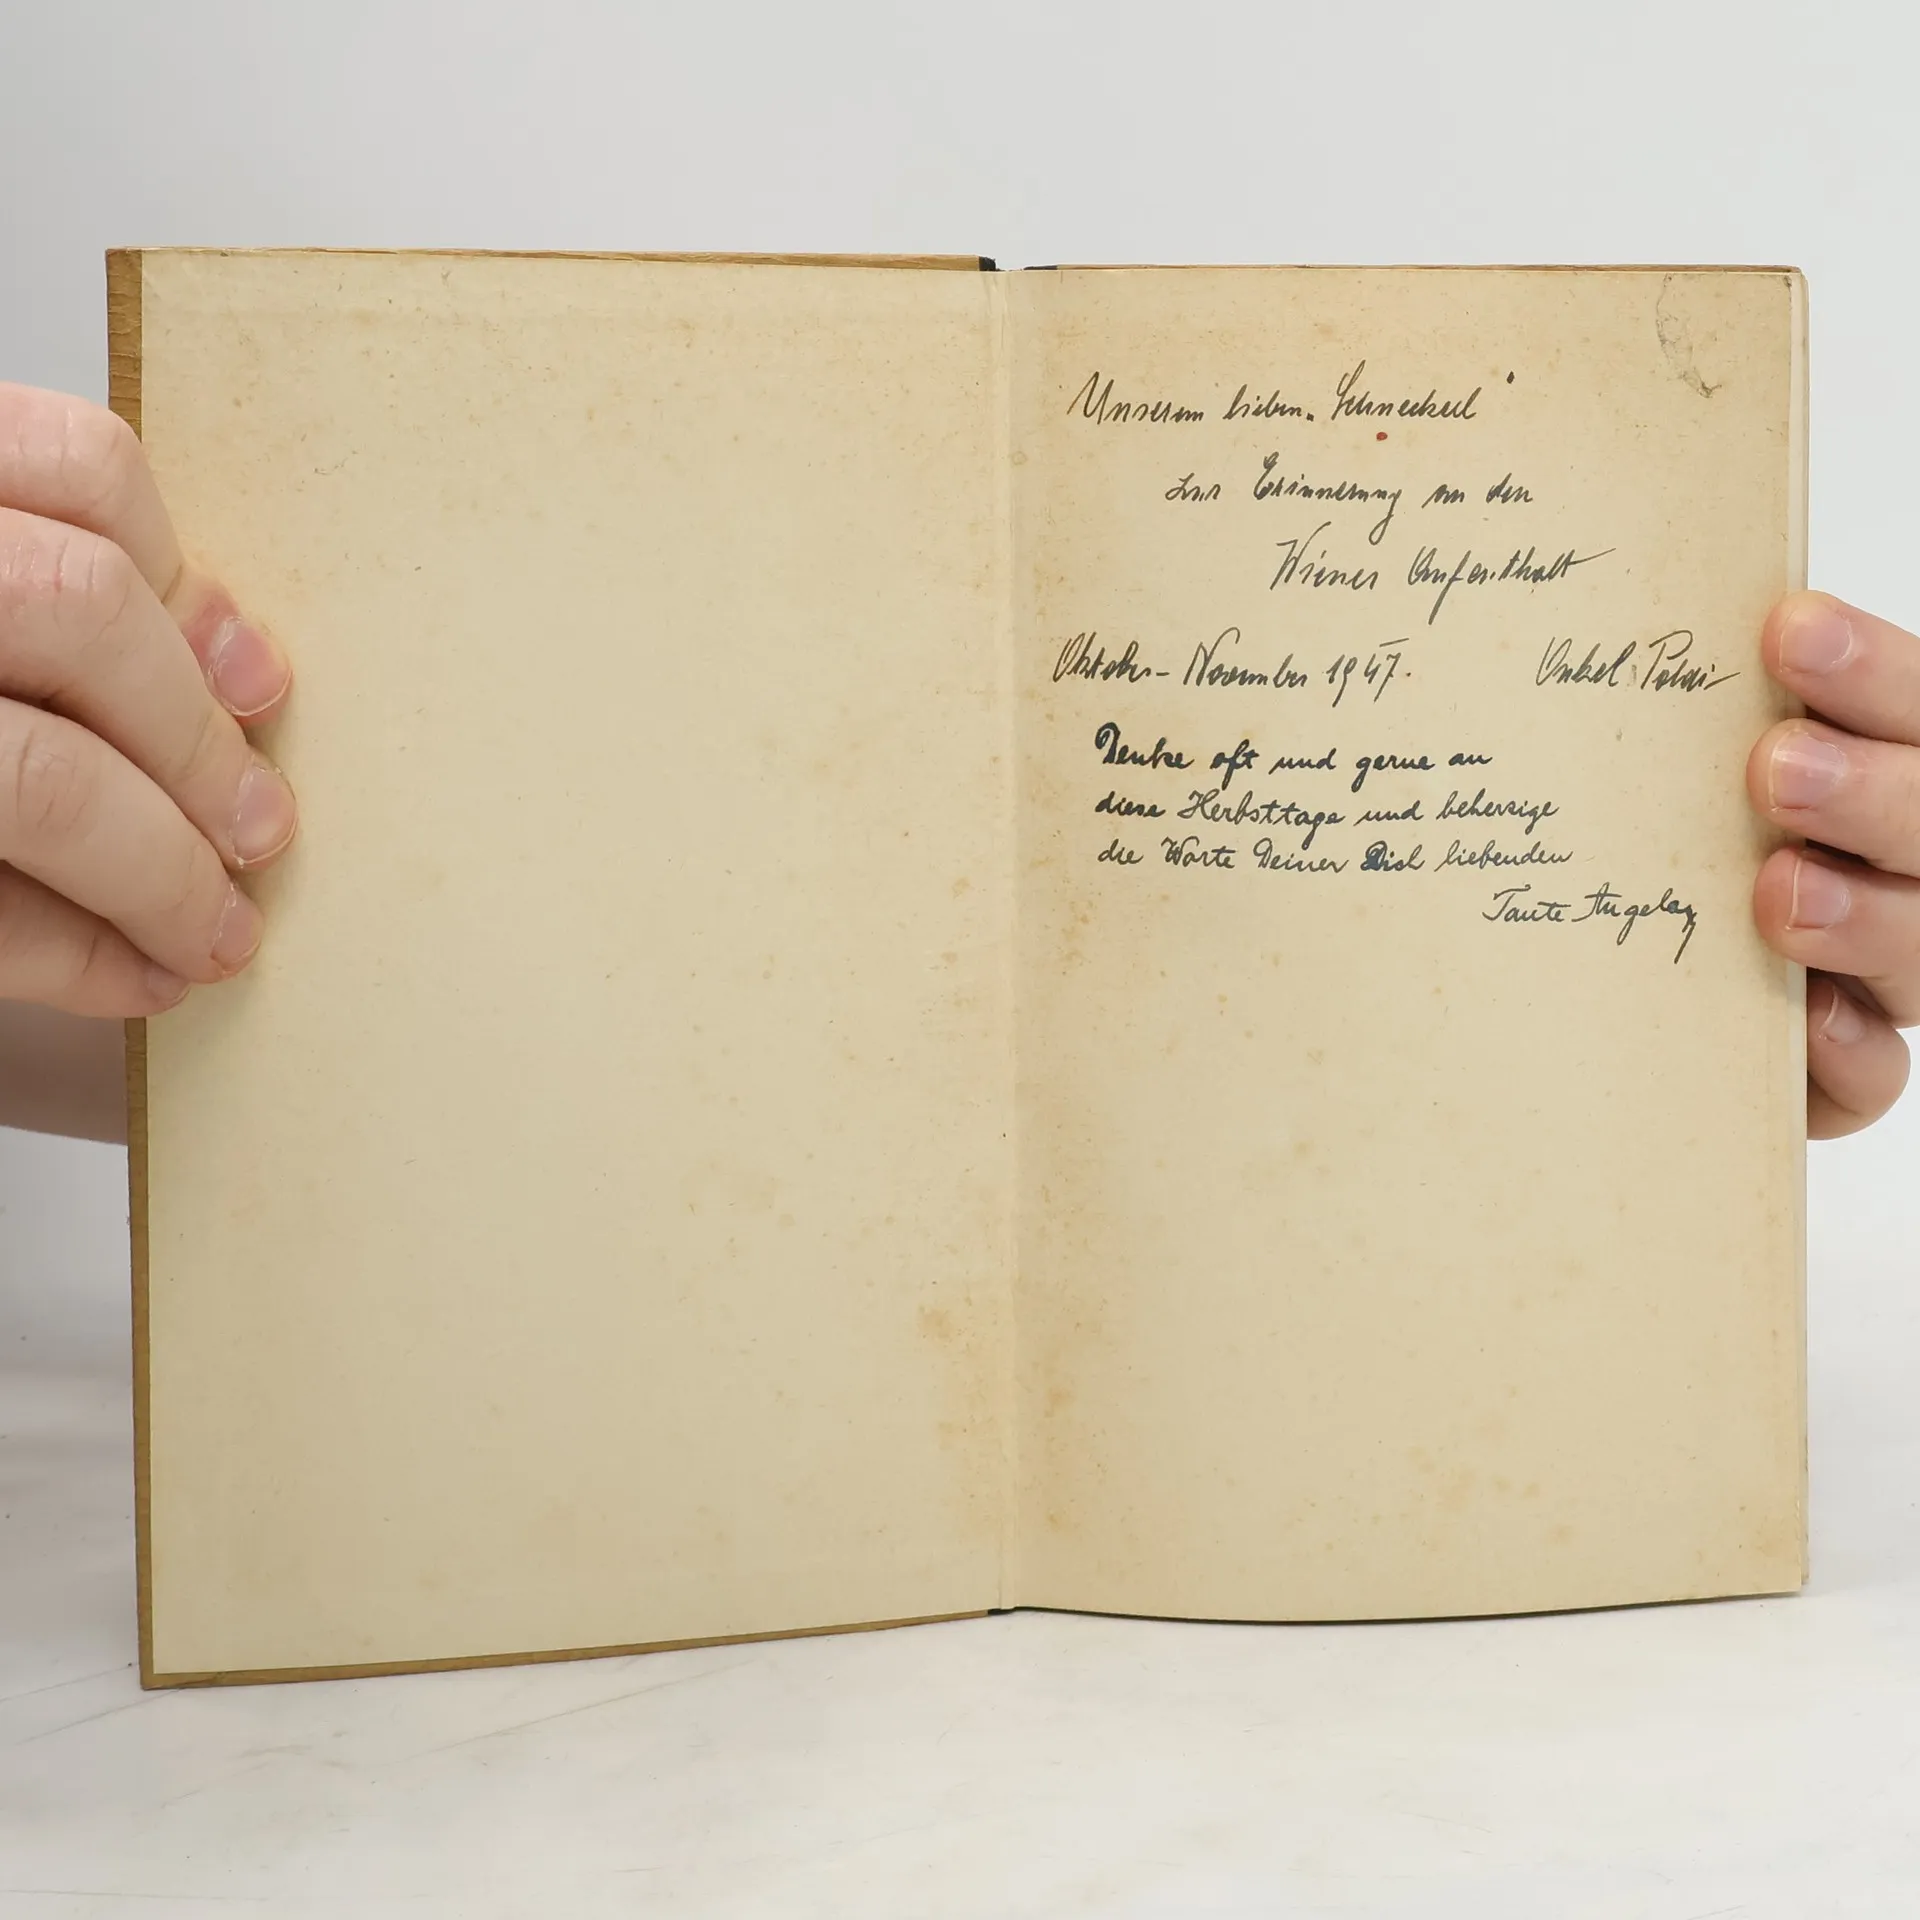 Unserem lieben „Schneckerl“
zur Erinnerung an den
Wiener Aufenthalt
Oktober – November 1947. Onkel Poldi
Denke oft und gerne an
diese Herbsttage und beherzige
die Worte Deiner Dich liebenden
Tante Angela